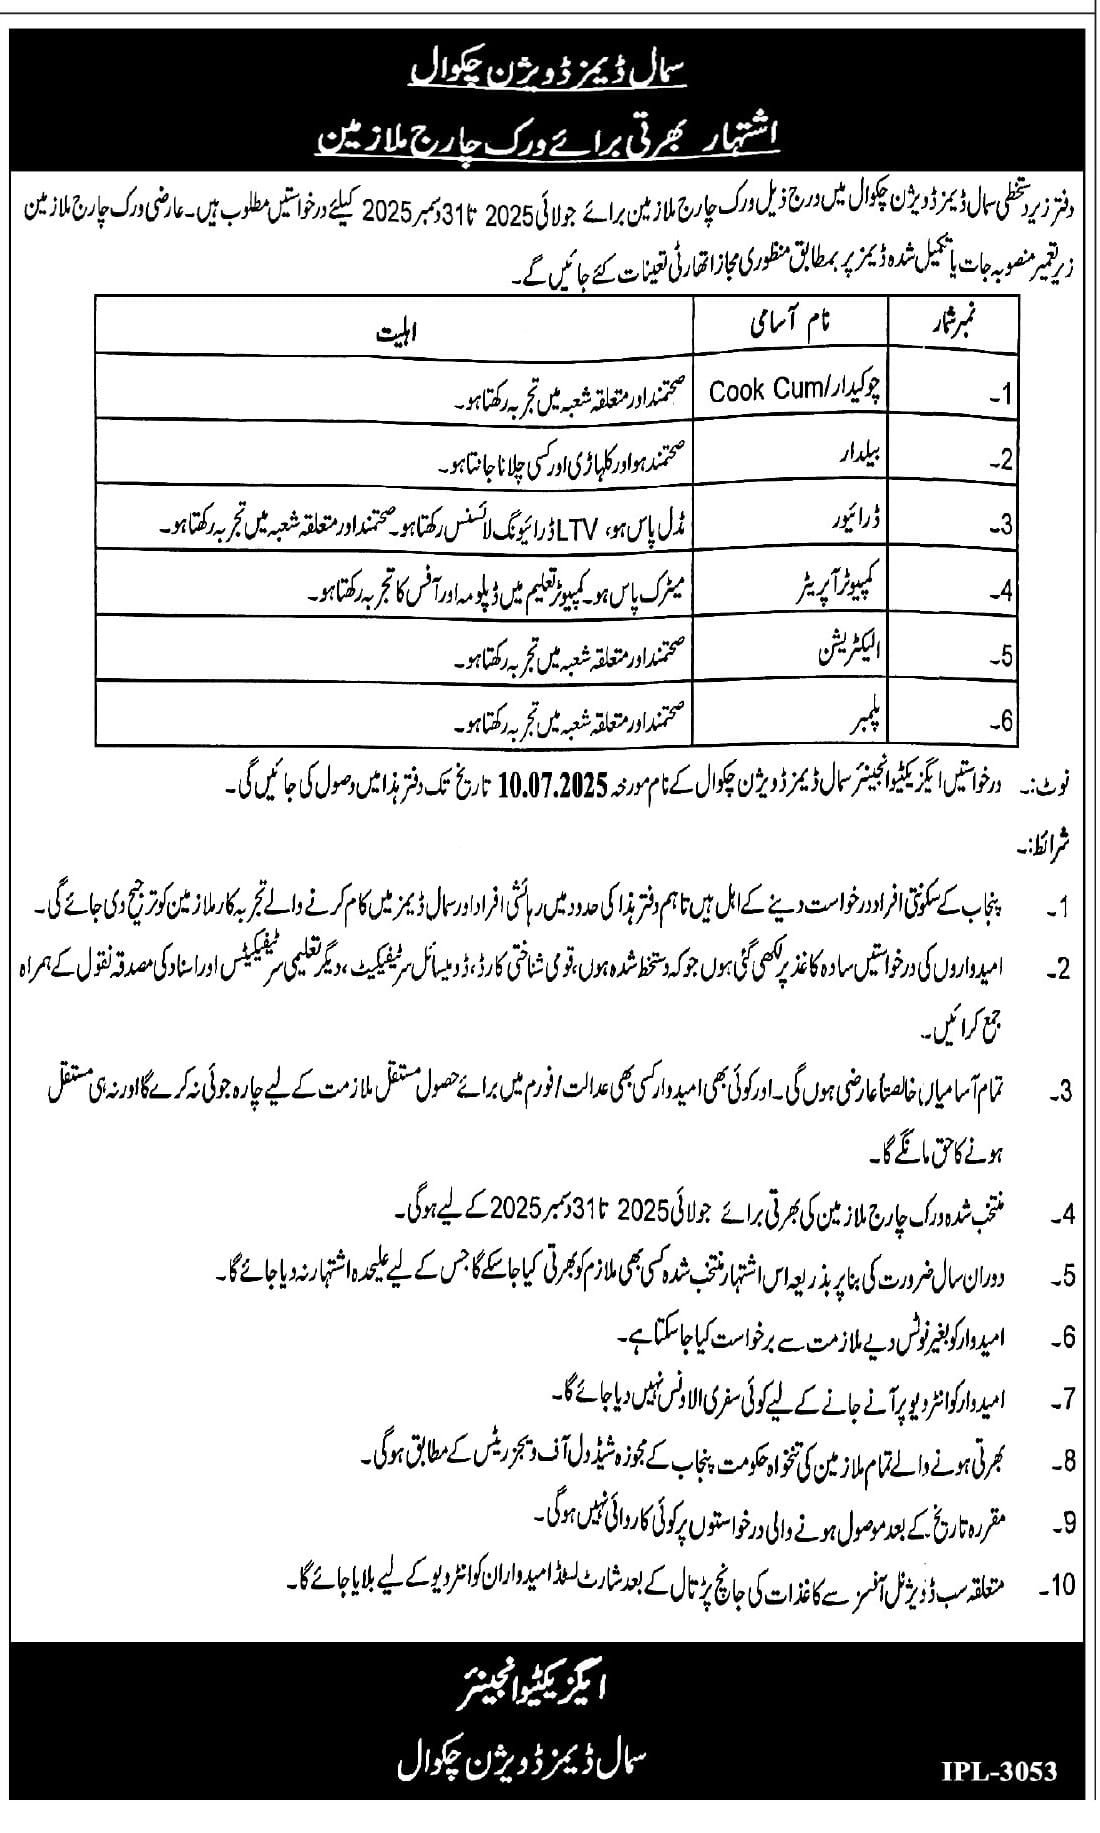 سمال ڈیمز ڈویژن چکوال
اشتہار بھرتی برائے ورک چارج ملازمین
دفتر زیر دستخطی سمال ڈیمز ڈویژن چکوال میں درج ذیل ورک چارج ملازمین برائے جولائی 2025 تا 31 دسمبر 2025 کیلئے درخواستیں مطلوب ہیں۔ عارضی ورک چارج ملازمین
زیر تعمیر منصوبہ جات یا تکمیل شدہ ڈیمز پر بمطابق منظوری مجاز اتھارٹی تعینات کئے جائیں گے۔
نمبر شمار نام آسامی اہلیت
1۔ چوکیدار/Cook Cum صحتمند اور متعلقہ شعبہ میں تجربہ رکھتا ہو۔
2۔ بیلدار صحتمند ہو اور کلہاڑی اور کسی چلانا جانتا ہو۔
3۔ ڈرائیور مڈل پاس ہو، LTV ڈرائیونگ لائسنس رکھتا ہو۔ صحتمند اور متعلقہ شعبہ میں تجربہ رکھتا ہو۔
4۔ کمپیوٹر آپریٹر میٹرک پاس ہو۔ کمپیوٹر تعلیم میں ڈپلومہ اور آفس کا تجربہ رکھتا ہو۔
5۔ الیکٹریشن صحتمند اور متعلقہ شعبہ میں تجربہ رکھتا ہو۔
6۔ پلمبر صحتمند اور متعلقہ شعبہ میں تجربہ رکھتا ہو۔
نوٹ:۔ درخواستیں ایگزیکٹو انجینئر سمال ڈیمز ڈویژن چکوال کے نام مورخہ 10.07.2025 تاریخ تک دفتر ہذا میں وصول کی جائیں گی۔
شرائط:۔
1۔ پنجاب کے سکونتی افراد درخواست دینے کے اہل ہیں تاہم دفتر ہذا کی حدود میں رہائشی افراد اور سمال ڈیمز میں کام کرنے والے تجربہ کار ملازمین کو ترجیح دی جائے گی۔
2۔ امیدواروں کی درخواستیں سادہ کاغذ پر لکھی گئی ہوں جو کہ دستخط شدہ ہوں، قومی شناختی کارڈ، ڈومیسائل سرٹیفکیٹ، دیگر تعلیمی سرٹیفکیٹس اور اسناد کی مصدقہ نقول کے ہمراہ
جمع کرائیں۔
3۔ تمام آسامیاں خالصتاً عارضی ہوں گی۔ اور کوئی بھی امیدوار کسی بھی عدالت/فورم میں برائے حصول مستقل ملازمت کے لیے چارہ جوئی نہ کرے گا اور نہ ہی مستقل
ہونے کا حق مانگے گا۔
4۔ منتخب شدہ ورک چارج ملازمین کی بھرتی برائے جولائی 2025 تا 31 دسمبر 2025 کے لیے ہوگی۔
5۔ دوران سال ضرورت کی بنا پر بذریعہ اس اشتہار منتخب شدہ کسی بھی ملازم کو بھرتی کیا جا سکے گا جس کے لیے علیحدہ اشتہار نہ دیا جائے گا۔
6۔ امیدوار کو بغیر نوٹس دیے ملازمت سے برخواست کیا جا سکتا ہے۔
7۔ امیدوار کو انٹرویو پر آنے جانے کے لیے کوئی سفری الاونس نہیں دیا جائے گا۔
8۔ بھرتی ہونے والے تمام ملازمین کی تنخواہ حکومت پنجاب کے مجوزہ شیڈول آف ویجز ریٹس کے مطابق ہوگی۔
9۔ مقررہ تاریخ کے بعد موصول ہونے والی درخواستوں پر کوئی کاروائی نہیں ہوگی۔
10۔ متعلقہ سب ڈویژنل آفسز سے کاغذات کی جانچ پڑتال کے بعد شارٹ لسٹڈ امیدواران کو انٹرویو کے لیے بلایا جائے گا۔
ایگزیکٹو انجینئر
سمال ڈیمز ڈویژن چکوال
IPL-3053